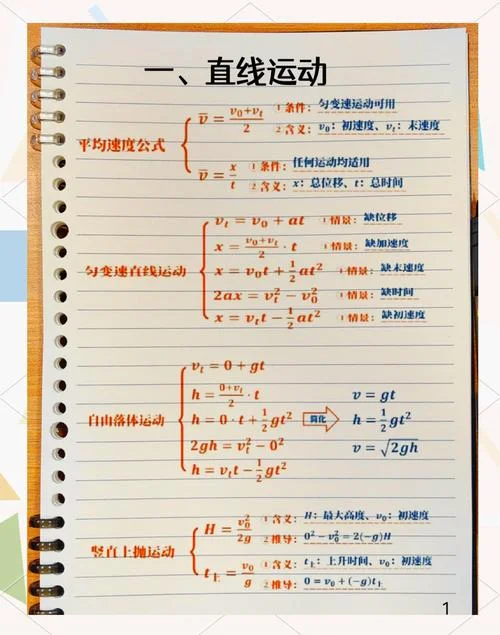 一、直线运动
平均速度公式
v̄ = (v₀+vₜ)/2 ①条件：匀变速运动可用
②含义：v₀：初速度、vₜ：末速度
v̄ = x/t ①条件：任何运动均适用
②含义：x：总位移、t：总时间
匀变速直线运动
vₜ = v₀ + at ①情景：缺位移
x = (v₀+vₜ)/2 · t ①情景：缺加速度
x = v₀t + ½at² ①情景：缺末速度
2ax = vₜ² − v₀² ①情景：缺时间
x = vₜt − ½at² ①情景：缺初速度
自由落体运动
vₜ = 0 + gt
h = (0+vₜ)/2 · t
h = 0 · t + ½gt²
2gh = vₜ² − 0²
h = vₜt − ½gt²
简化
v = gt
h = ½gt²
v = √(2gh)
竖直上抛运动
H = v₀²/2g ①含义：H：最大高度、v₀：初速度
②推导：0² − v₀² = 2(−g)H
t上 = v₀/g ①含义：t上：上升时间、v₀：初速度
②推导：0 = v₀ + (−g)t上
1